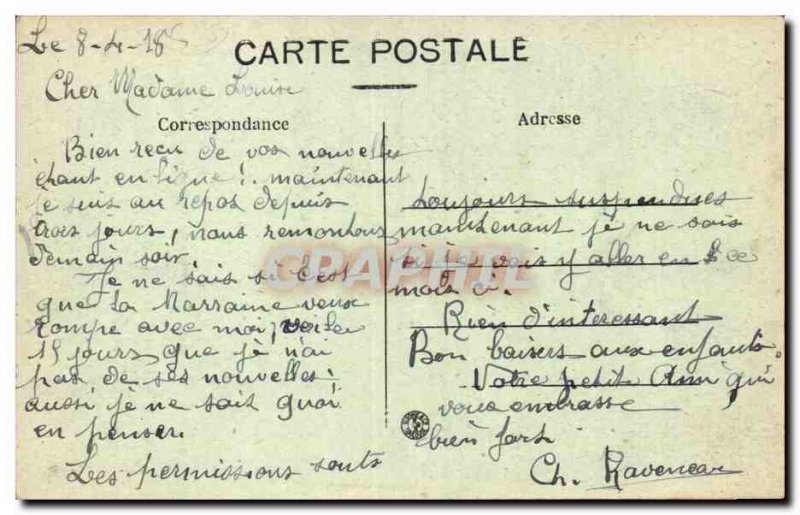 Le 8-4-18
CARTE POSTALE
Cher Madame Louise
Correspondance
Bien recu de vos nouvelles
étant en ligne! maintenant
je suis au repos depuis
trois jours, nous remontons
demain soir.
Je ne sais si c'est
que la Marraine veux
rompe avec moi, voila
15 jours que je n'ai
pas de ses nouvelles;
aussi je ne sait quoi
en penser.
Les permissions sonts
Adresse
toujours suspendues
maintenant je ne sais
si je vois y aller en ce
mois ci.
Rien d'interessant
Bon baisers aux enfants.
Votre petit Ami qui
vous embrasse
bien fort
Ch. Raveneau
CRAPHILE